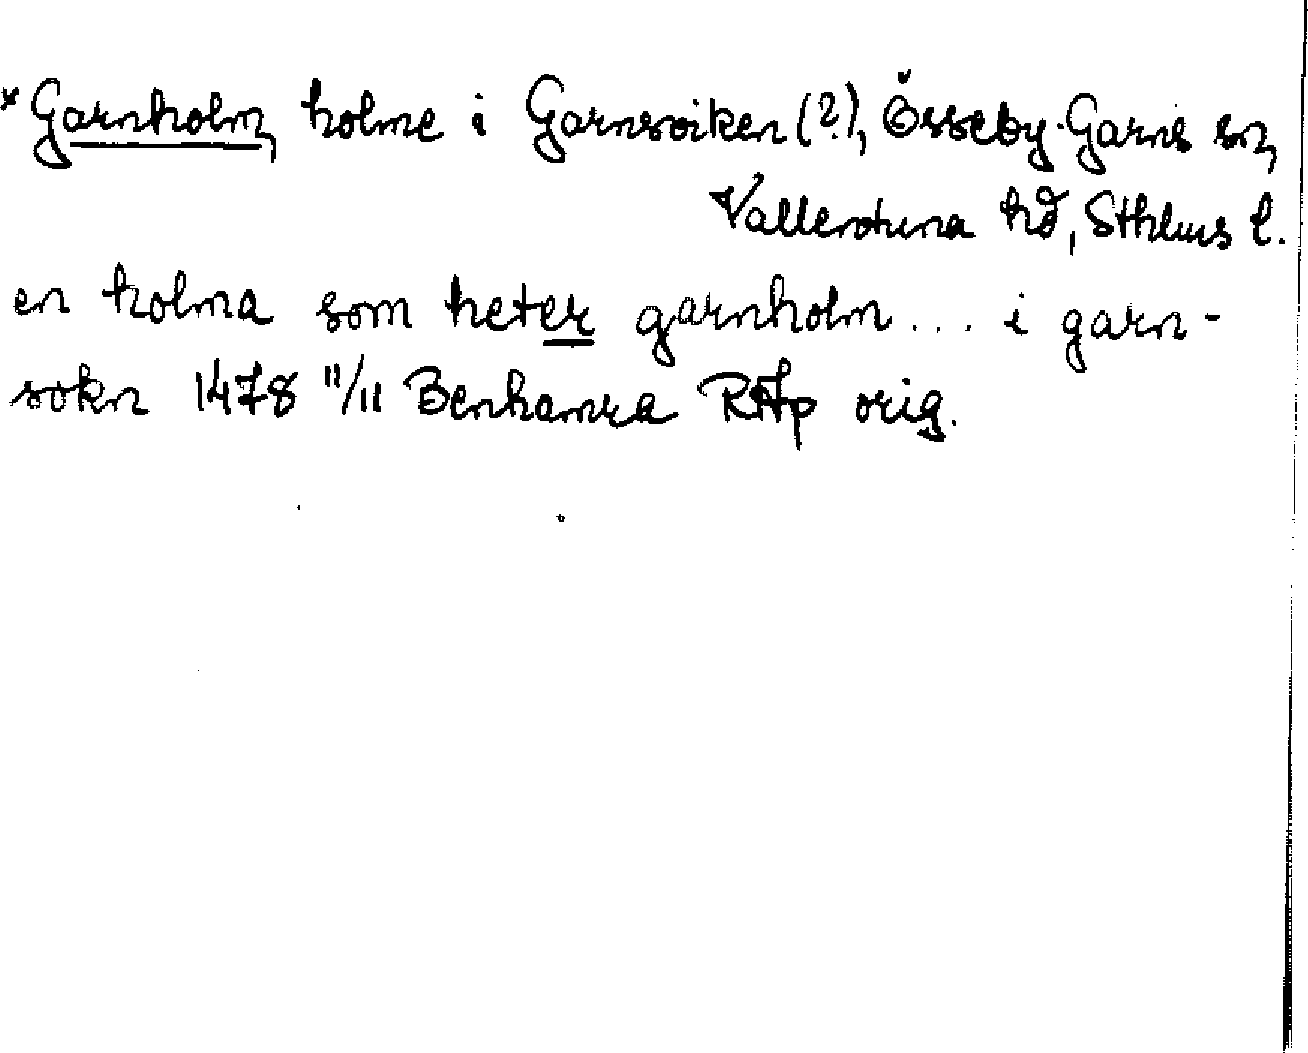 *Garnholm, holme i Garnsviken (?), Össeby-Garns sn,
Vallentuna hd, Sthlms l.
en holma som heter garnholm... i garn-
sokn 1478 11/11 Benhamra RAp orig.